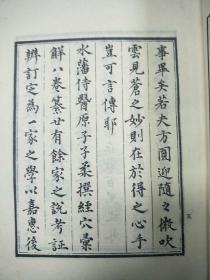 事畢矣若夫方圓迎隨之微吹
雲見蒼之妙則在於得之心手
豈可言傳耶
水藩侍醫原子子柔撰經穴彙
解八卷纂廿有餘家之說考証
辨訂定為一家之學以嘉惠後
五